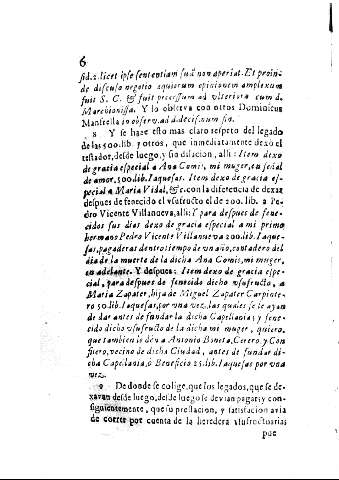 6
sid.2. licet ipse sententiam suã non aperiat. Et proin-
de discuso negotio aquiorum opinionem amplexum
fuit S. C. & fuit processum ad ulteriora cum d.
Marchionissa. Y lo observa con otros Dominicus
Manfrella in observ. ad d. decis. num fin.
8 Y se hace esto mas claro respeto del legado
de las 500. lib. y otros, que inmediatamente dexò el
testador, desde luego, y sin dilacion, alli: Item dexo
de gracia especial a Ana Comis, mi muger, en señal
de amor, 500. lib. Iaquesas. Item dexo de gracia es-
pecial a Maria Vidal, &c. con la diferencia de dexar
despues de fenecido el vsufructo el de 200. lib. a Pe-
dro Vicente Villanueva, alli: Y para despues de fene-
cidos sus dias dexo de gracia especial a mi primo
hermano Pedro Vicente Villanueva 200. lib. Iaque-
sas, pagaderas dentro tiempo de vn año, contadero del
dia de la muerte de la dicha Ana Comis, mi muger,
en adelante. Y despues: Item dexo de gracia espe-
cial, para despues de fenecido dicho vsufructo, a
Maria Zapater, hija de Miguel Zapater Carpinte-
ro 50. lib. Iaquesas, por vna vez, las quales se le ayan
de dar antes de fundar la dicha Capellania; y fene-
cido dicho vsufructo de la dicha mi muger, quiero,
que tambien le den a Antonio Boneta, Cerero, y Con
fitero, vecino de dicha Ciudad, antes de fundar di-
cha Capellania, ò Beneficio 25. lib. Iaquesas por vna
vez.
9 De donde se colige, que los legados, que se de-
xavan desde luego, desde luego se devian pagar; y con-
siguientemente, que su prestacion, y satisfacion avia
de correr por cuenta de la heredera vsufructuarias
por